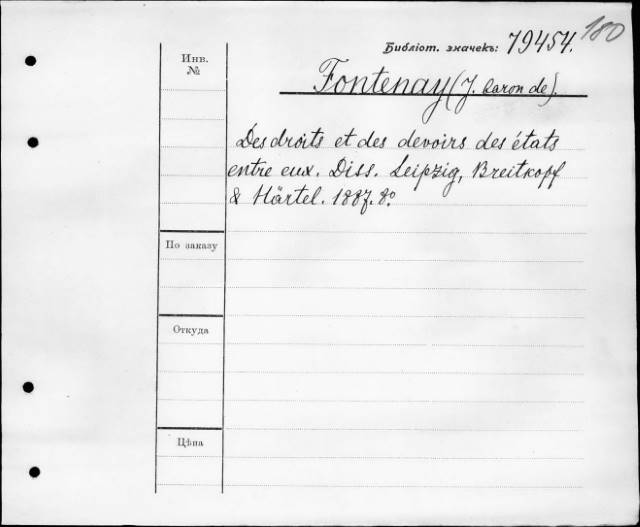 180
Библіот. значекъ: 79454.
Инв.
№
Fontenay (J. baron de).
Des droits et des devoirs des états
entre eux. Diss. Leipzig, Breitkopf
& Härtel. 1887. 8º
По заказу
Откуда
Цѣна